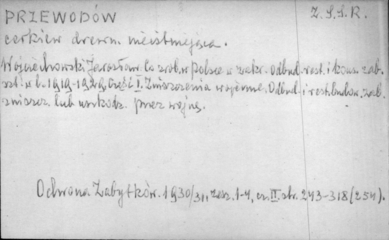 PRZEWODÓW Z.S.S.R.
cerkiew drewn. nieistniejąca.
Wojciechowski Jarosław. Co zrob. w Polsce w zakr. odbud. rest. i kons. zab.
szt. w l. 1919-1929. Część I. Zniszczenia wojenne. Odbud. i rest. budow. zab.
zniszcz. lub uszkodz. przez wojnę.
Ochrona Zabytków. 1930/31, zesz. 1-4, cz. II. str. 243-318 (254).